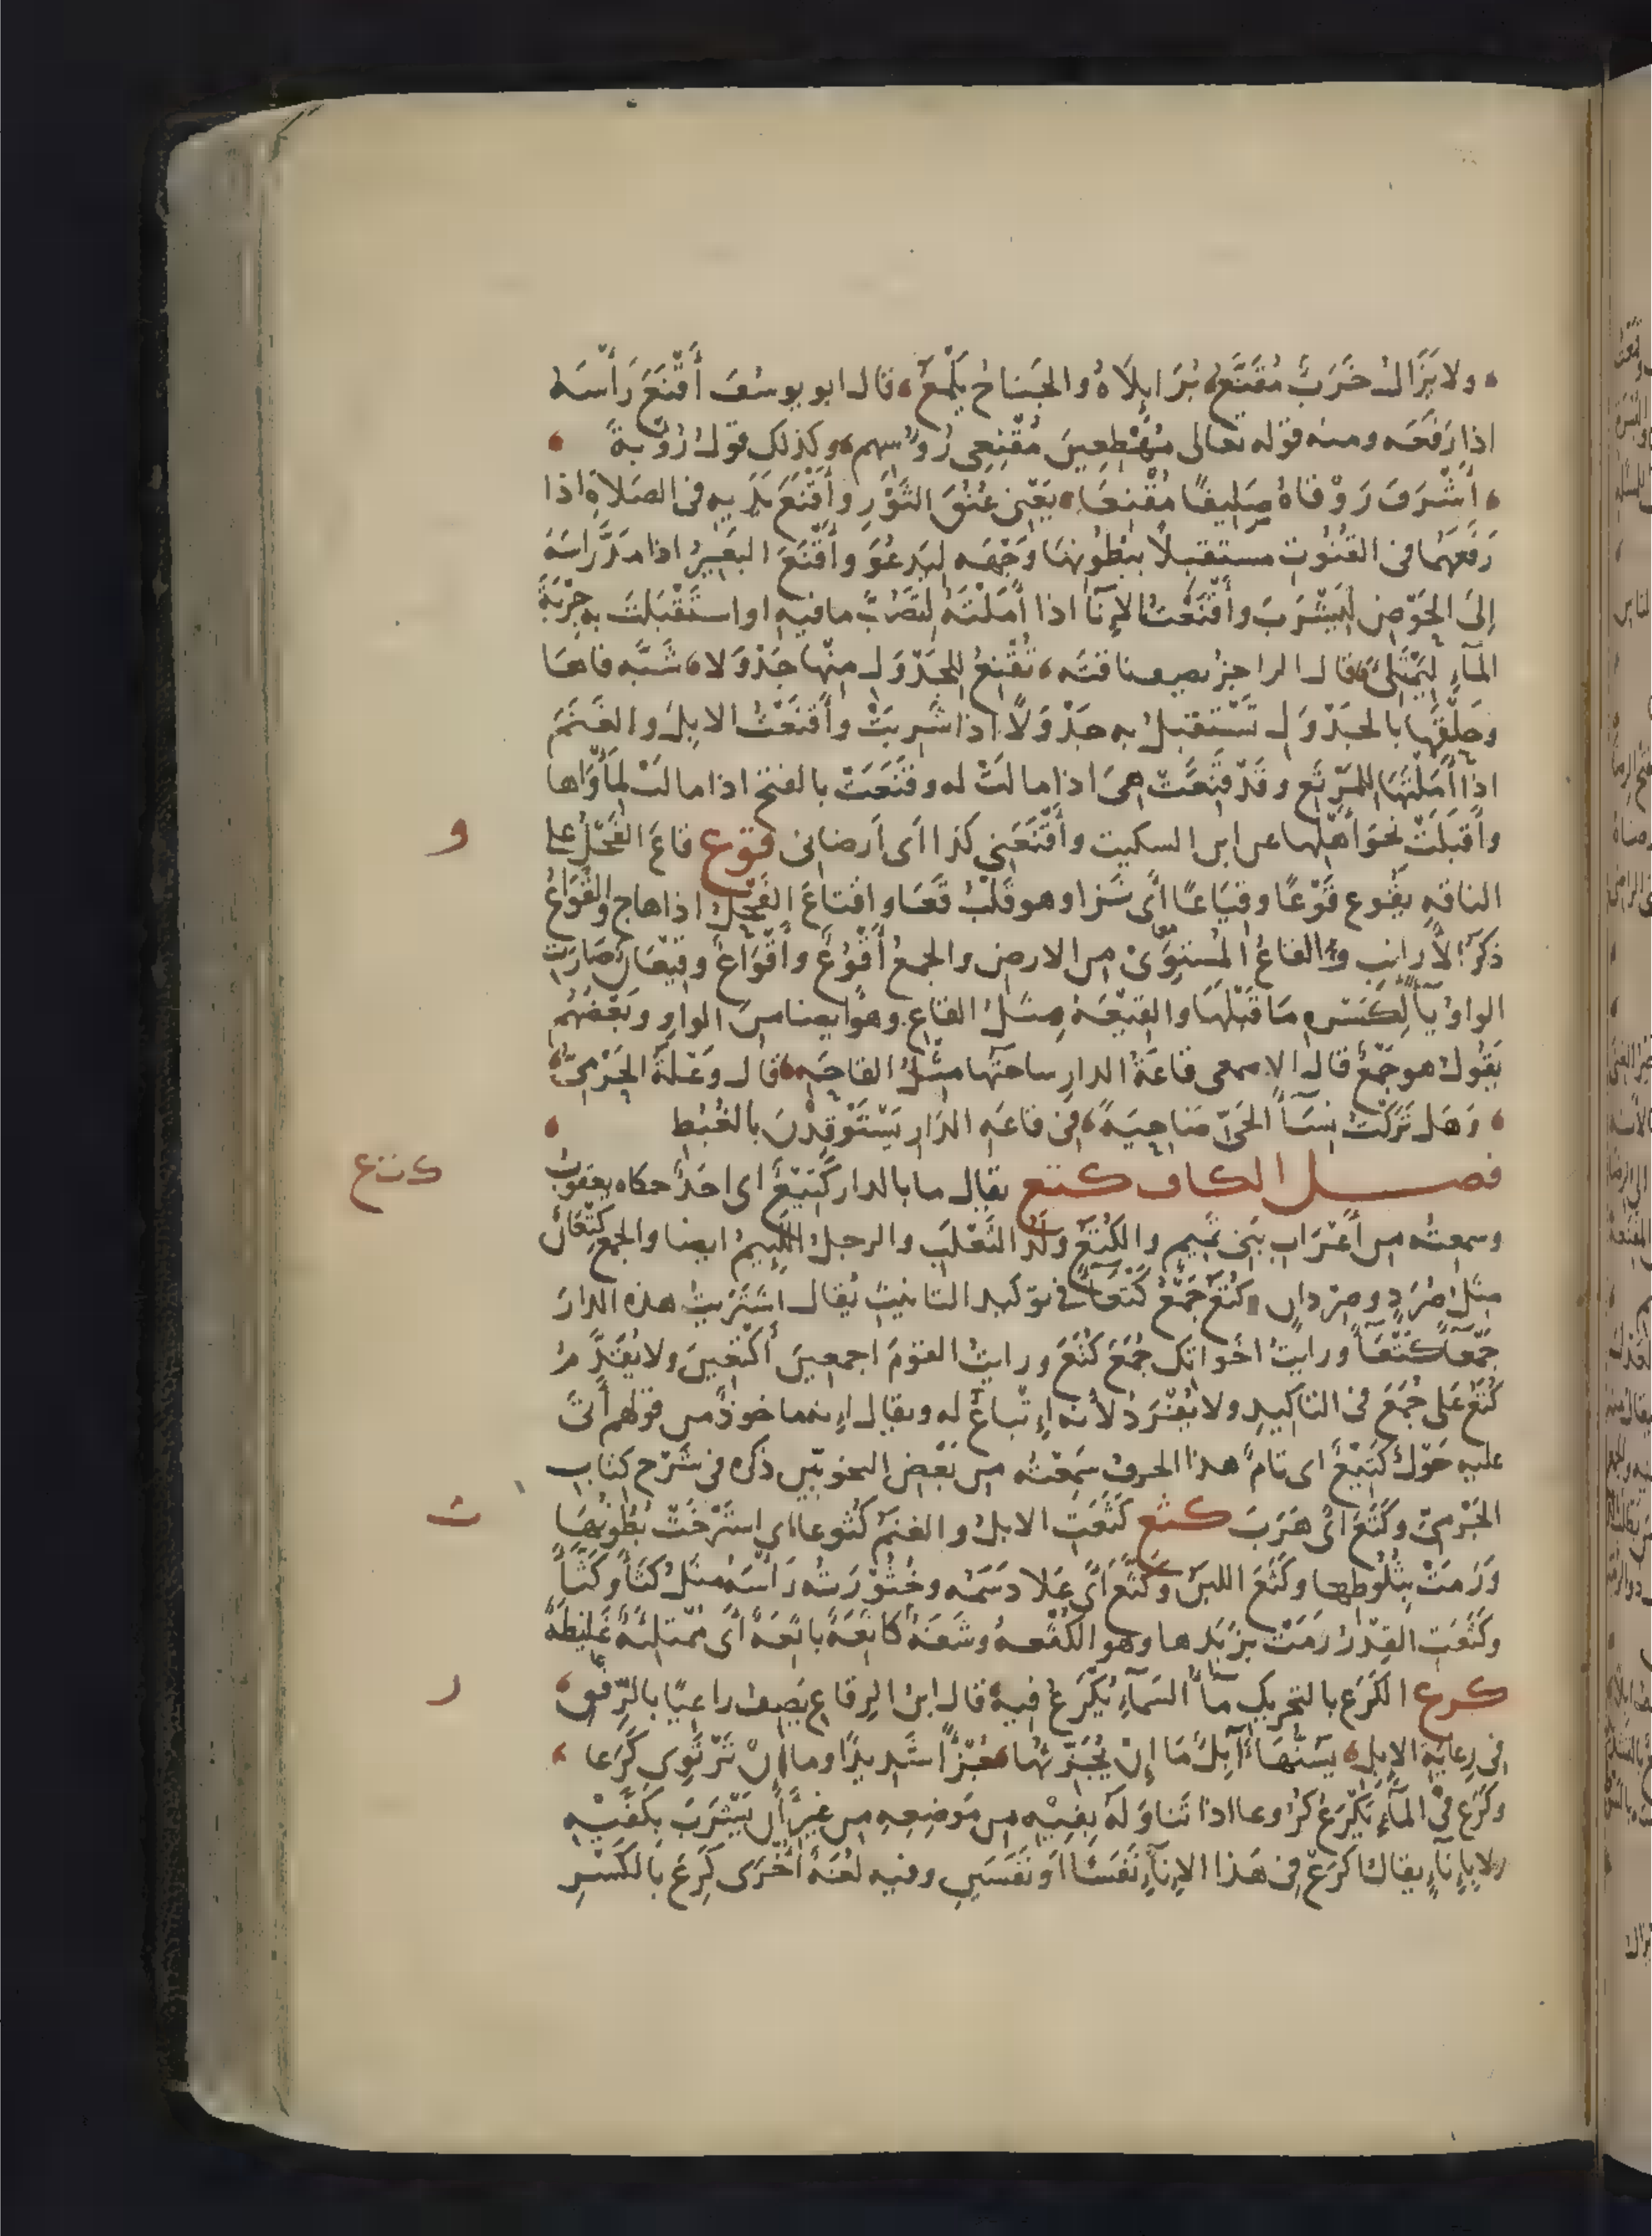 ولا يَزَالُ خَرَبٌ مُقَنَّعُ بُرَائِلَاهُ والجَناحُ يَلْمَعُ قال ابو يوسُفَ أَقْنَعَ رَأْسَهُ
اذا رَفَعَه ومنه قوله تعالى مُهْطِعِينَ مُقْنِعِى رُوُسِهِم وكذلك قوْلُ رُؤْبةَ
أَشْرَفَ رَوْقَاهُ صَلِيفًا مُقْنِعَا يَعْنى عُنُقَ الثَّوْرِ وأَقْنَعَ يَدَيهِ فى الصَلاةِ اذا
رَفَعَهُما فى القُنُوتِ مستقبلًا ببُطُونِهَا وَجْهَه ليَدعُوَ وأَقْنَعَ البَعِيرُ اذا مَدَّ رَاسَهُ
إلىَ الحَوْضِ لِيَشْرَبَ وأَقْنَعْتُ الإِنَآ اذا أَمَلْتَهُ لِتَصُبَّ ما فيهِ او استَقْبَلتَ به جِرْيَةَ
المَآءِ لِيَمْتَلِىَ قال الراجزُ يصف ناقته تُقْنِعُ للجَدْوَلِ منْها جَدْوَلا شَبَّه فاهَا
وحَلْقَها بالجَدْوَلِ تَسْتَقبلُ به جَدْوَلًا اذا شَرِبَتْ وأَقنَعْتُ الابِلَ والغَنَمَ
اذا أَمَلْتَهَا للمَرْتَعِ وقَدْ قَنِعَتْ هىَ اذا مالَتْ له وقَنَعَتْ بالفتح اذا مالَتْ لِمَأْوَاها
وأَقبَلَتْ نحوَ أَهْلِها عن ابن السكيت وأَقْنَعَنِى كذا اى أرضانى قوع قاعَ الفَحْلُ على
الناقهِ يقُوع قَوْعًا وقِيَاعًا أى نَزَا وهو قَلْبُ قَعَا واقتاعَ الفَحْلُ اذا هاج والقُوَاعُ
ذكَرُ الأَرانِبِ والقاعُ المُستوِى من الارض والجمعُ أَقْوُعٌ وأَقْوَاعٌ وقِيعَانٌ صَارَت
الواوُ يآً لِكَسْرهِ مَا قَبْلَهَا والقِيْعَهُ مِثلُ القاعِ وهو ايضا من الواوِ وبَعْضُهُم
يَقُولُ هو جَمْعٌ قال الاصمعى قاعَةُ الدارِ ساحتُها مثْلُ القاحَهِ قال وَعْلةُ الجَرْمِىُّ
وَهَل تَرَكْتُ نِسَآ الحَىِّ ضَاحِيَةً فى قاعَهِ الدارِ يَسْتَوْقِدْنَ بالغُبُطِ
فصل الكاف كتع يقال ما بالدار كَتِيعٌ اى احَدٌ حكاه يعقوبُ
وسمعتُه من أَعْرَابِ بَنِى تَمِيمٍ والكُتَعُ وَلَدُ الثَّعْلَبِ والرجلُ اللَّئِيمُ ايضا والجمع كِتْعَانٌ
مثلُ صُرَدٍ وصِرْدانٍ وكُتَعُ جَمْعُ كَتْعَآ فى توكيد التانيث يُقال اشتَريتُ هذه الدارَ
جَمْعآَ كَتْعَآَ ورايتُ اخَواتك جُمَعَ كُتَعَ ورايتُ القومَ اجمعينَ أَكْتَعِينَ ولا يُقَدَّمُ
كُتَعُ عَلى جُمَعَ فى التاكيدِ ولا يُفْرَدُ لأنه إِتْباعٌ له ويقال إنه ماخوذٌ من قولهم أَتَى
عليه حَوْلٌ كَتِيعٌ اى تامٌّ هذا الحرفُ سَمِعْتُه من بَعْضِ النحويّين ذكره فى شَرْح كِتابِ
الجَرْمىّ وكَتَعَ اى هَرَبَ كثع كَثَعَتِ الابلُ والغنَمُ كُثوعا اى اسْتَرْخَتْ بُطُونُها
وَرَمَتْ بِثُلُوطِها وكَثَعَ اللبنُ وكَثَّعَ أى عَلا دَسَمُه وخُثُوْرَتُه رَأْسَهُ مثلُ كَثَأَ وكَثَّأَ
وكَثَّعَتِ القِدْرُ رَمَتْ بزَبَدِها وهو الكُثْعهُ وشَفَهٌ كاثِعَهٌ باثِعَهٌ أى مُمْتَلِئَهٌ غَلِيظَةٌ
كرع الكَرَع بالتحريك مآُ السمَآءِ يُكْرَعُ فيهِ قال ابنُ الرِقاعِ يَصِف راعيًا بالرِّفْقِ
فى رِعايةِ الابلِ يَسُنُّهَا آبِلٌ مَا إِنْ يُجَزِّئُها جُزْأً شَدِيدًا وما إِنْ تَرْتَوِى كَرَعا
وكَرَع فى المآءِ يَكْرَعُ كُرُوعا اذا تَناوَلَهُ بِفِيْهِ مِن مَوضِعِهِ من غيرِ أن يَشْرَبَ بكَفَّيْهِ
ولا بإِنآءٍ يقالُ اكْرَعْ فى هَذا الإنآءِ نَفَسًا او نَفَسَينِ وفيه لُغَهٌ أُخْرَى كَرِعَ بالكَسْرِ
و
ك ت ع
ث
ر